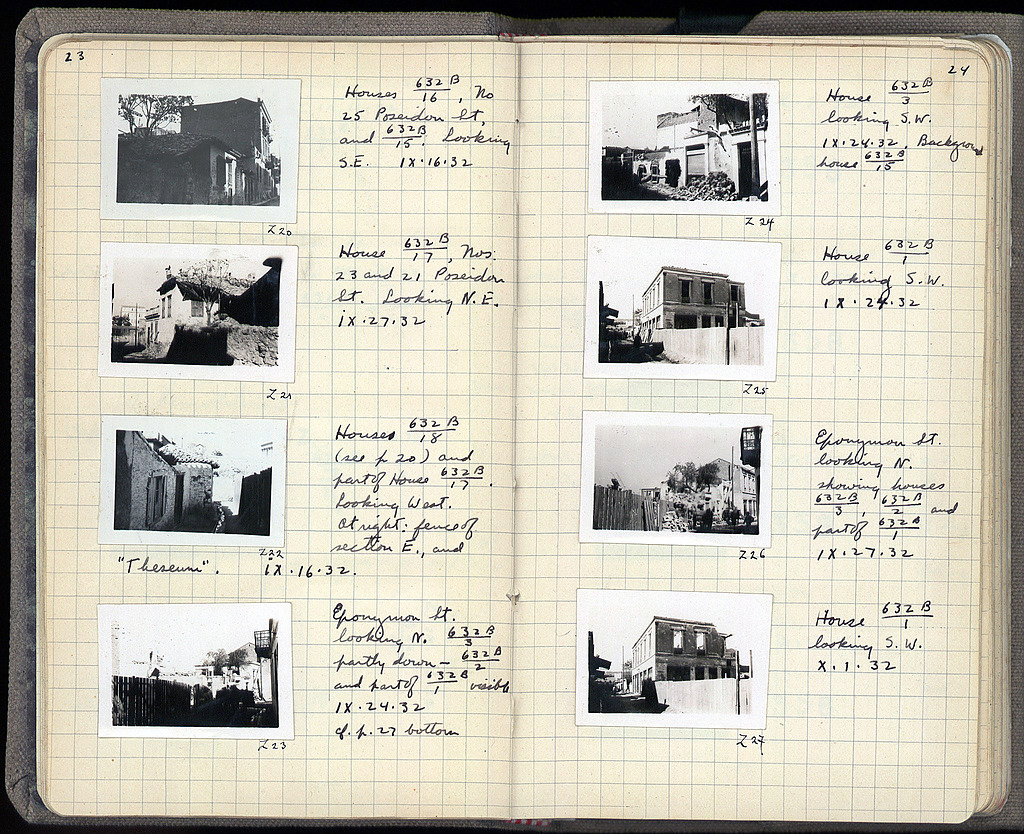 23
Houses 632 B/16, No
25 Poseidon St,
and 632 B/15. Looking
S.E. IX.16.32
Z 20
House 632 B/17, Nos.
23 and 21 Poseidon
St. Looking N.E.
IX.27.32
Z 21
Houses 632 B/18
(see p 20) and
part of House 632 B/17.
Looking West.
At right: fence of
section E., and
Z 22
"Theseum". IX.16.32.
Eponymon St.
looking N. 632 B/3
partly down – 632 B/2
and part of 632 B/1 visible
IX.24.32
cf. p. 27 bottom
Z 23
24
House 632 B/3
looking S.W.
IX.24.32. Background
house 632 B/15
Z 24
House 632 B/1
looking S.W.
IX.24.32
Z 25
Eponymon St.
looking N.
showing houses
632 B/3, 632 B/2 and
part of 632 B/1
IX.27.32
Z 26
House 632 B/1
looking S.W.
X.1.32
Z 27